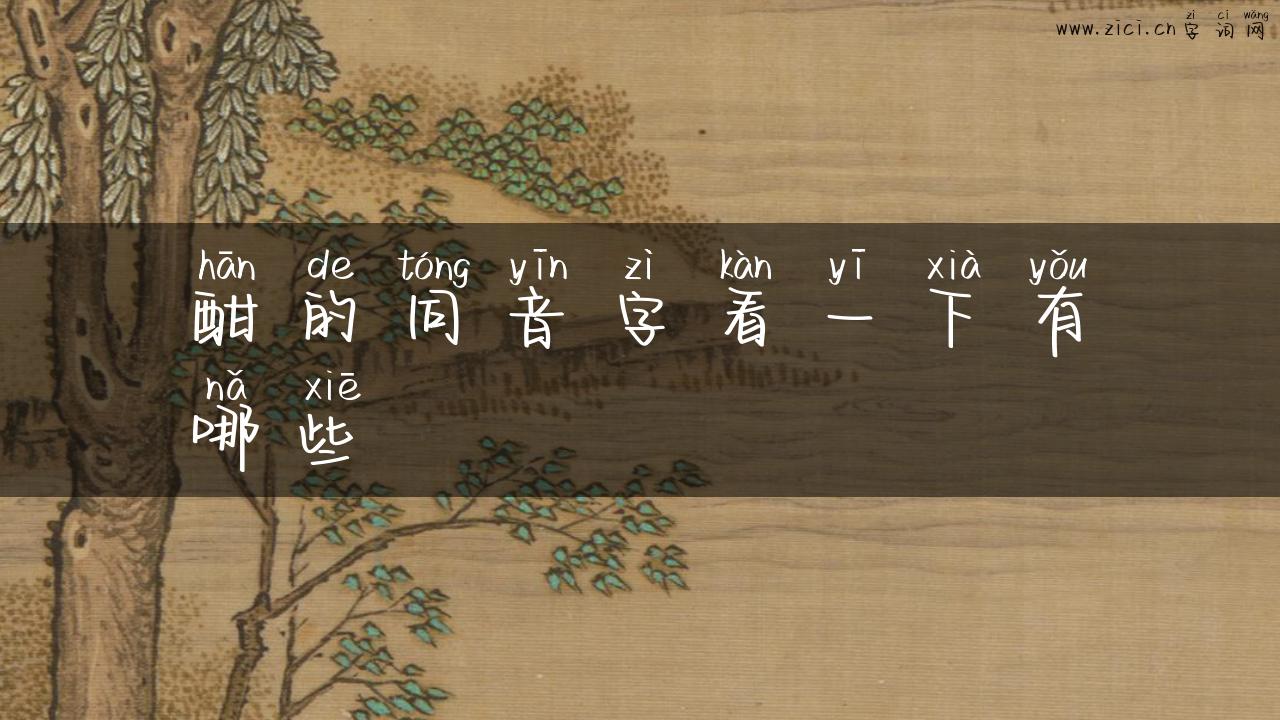 zì cí wǎng
www.zici.cn 字词网
hān de tóng yīn zì kàn yī xià yǒu
酣的同音字看一下有
nǎ xiē
哪些